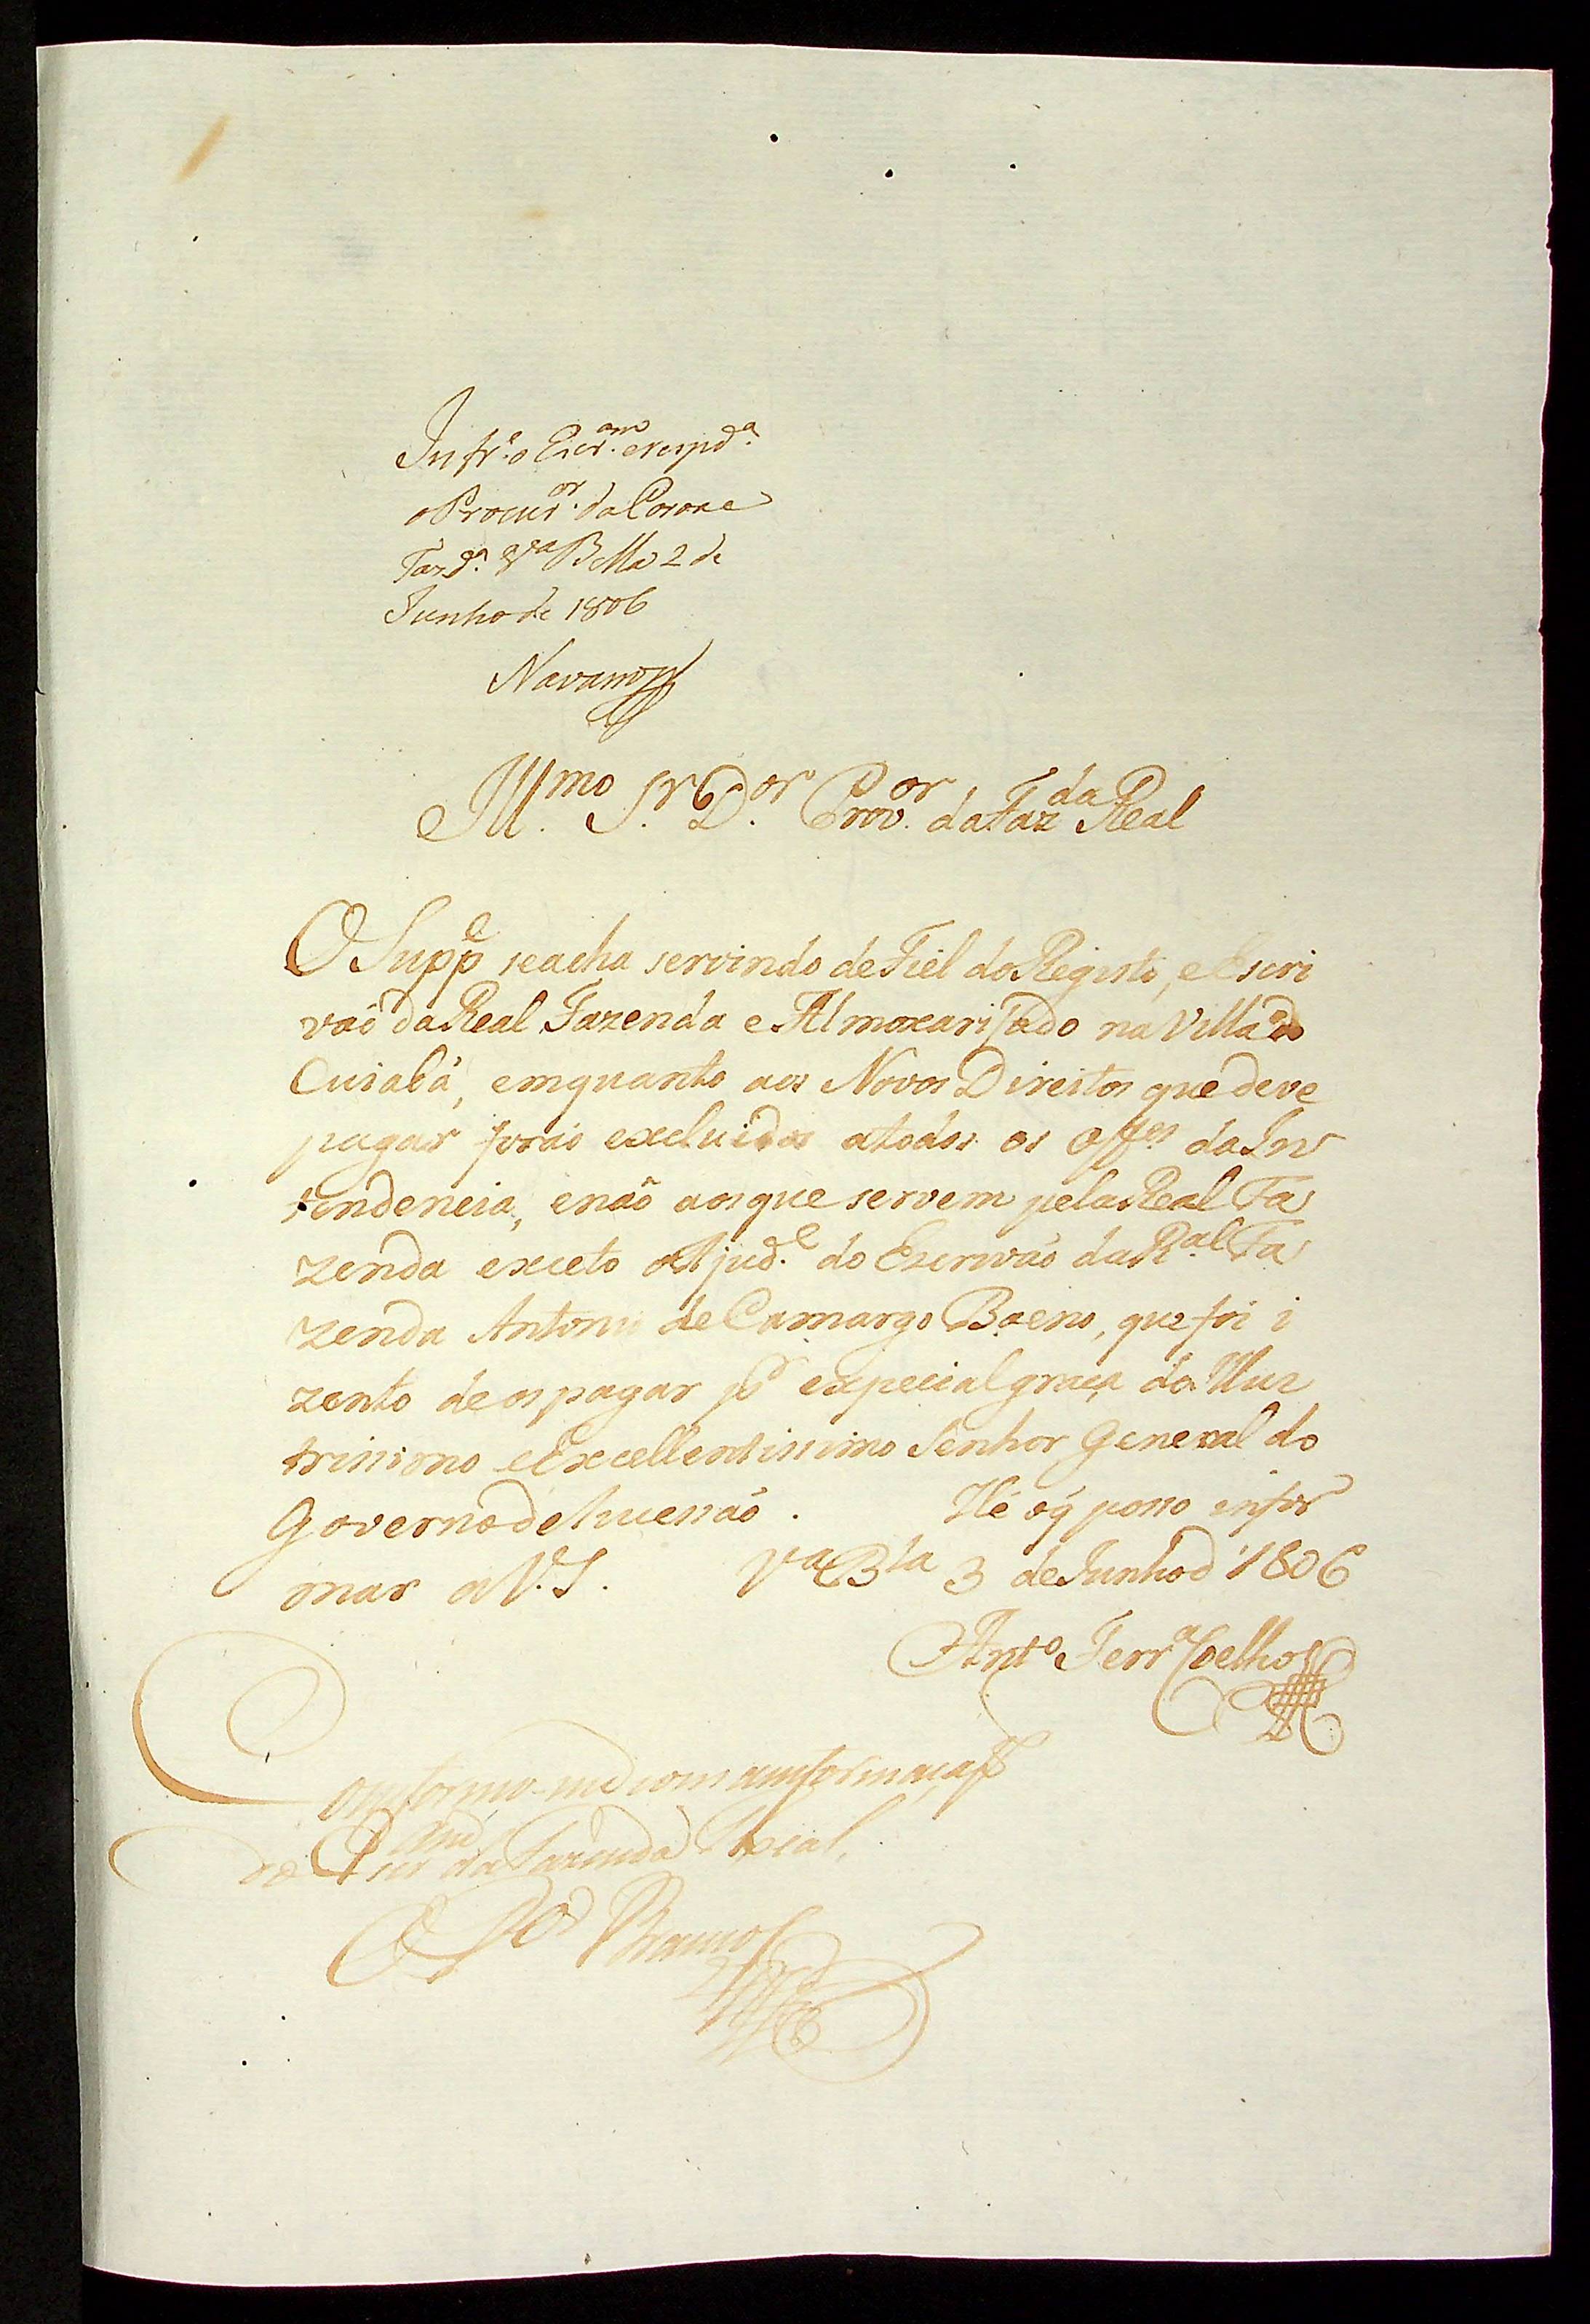 Infr.e o Escr.am e resp.da
o Procur.or da Coroa e
Faz.da V.a Bella 2 de
Junho de 1806
Navarro
Ill.mo S.r D.or Prov.or da Faz.da Real
O Supp.e se acha servindo de Fiel do Registo, e Escri
vaõ da Real Fazenda e Almoxarifado na Villa do
Cuiabá, emquanto aos Novos Direitos que deve
pagar foraõ excluidos a todos os off.es da In
tendencia, e naõ aos que servem pela Real Fa
zenda exceto o Ajud.e do Escrivaõ da R.al Fa
zenda Antonio de Camargo Baeno, que foi i
zento de os pagar p.r especial graça do Illus
trissimo e Excellentissimo Senhor General do
Governo de Sucessaõ. He o q̃ posso infor
mar a V.S. V.a B.la 3 de Junho d' 1806
Ant.o Ferr.a Coelho
Conformo-me com a informaçaõ
do Escr.am da Fazenda Real.